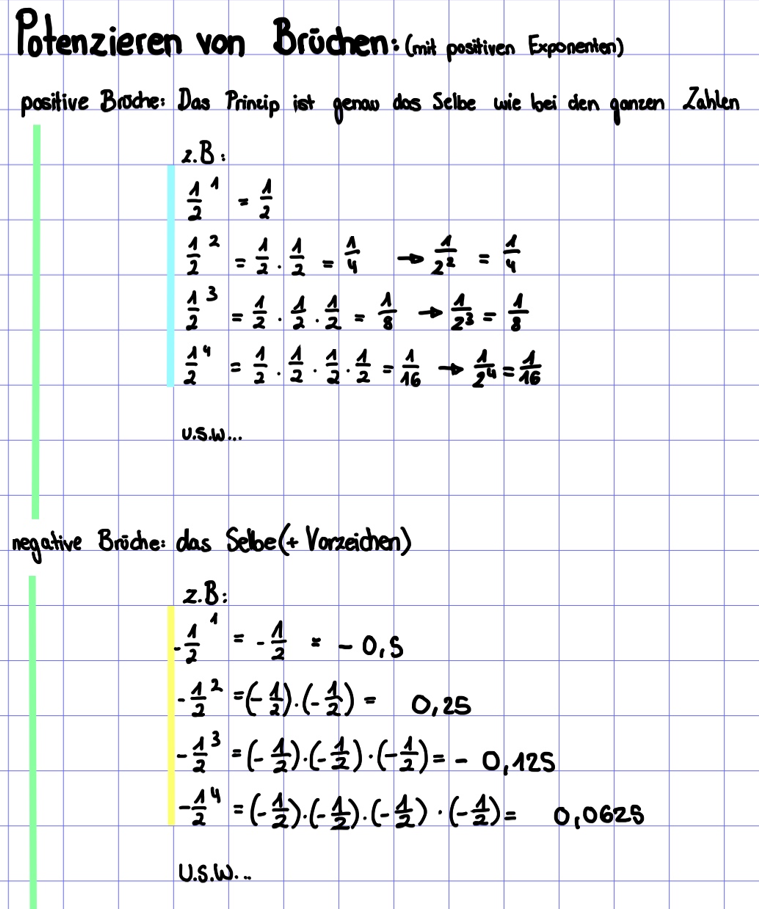 Potenzieren von Brüchen: (mit positiven Exponenten)
positive Brüche: Das Princip ist genau das Selbe wie bei den ganzen Zahlen
z.B:
1/2 ¹ = 1/2
1/2 ² = 1/2 · 1/2 = 1/4 → 1/2² = 1/4
1/2 ³ = 1/2 · 1/2 · 1/2 = 1/8 → 1/2³ = 1/8
1/2 ⁴ = 1/2 · 1/2 · 1/2 · 1/2 = 1/16 → 1/2⁴ = 1/16
u.s.w...
negative Brüche: das Selbe (+ Vorzeichen)
z.B:
-1/2 ¹ = -1/2 = -0,5
-1/2 ² = (-1/2)·(-1/2) = 0,25
-1/2 ³ = (-1/2)·(-1/2)·(-1/2) = -0,125
-1/2 ⁴ = (-1/2)·(-1/2)·(-1/2)·(-1/2) = 0,0625
U.S.W...